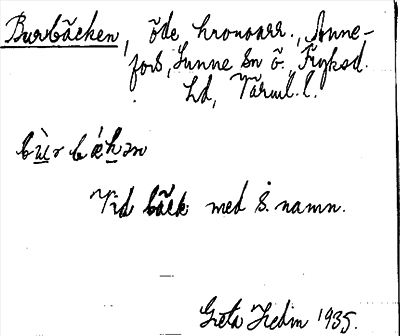 Burbäcken, öde kronoarr., Anne-
fors, Sunne sn ö. Fryksd.
hd, Värml. l.
bùrbǽkən
Vid bäck med s. namn.
Greta Hedin 1935.